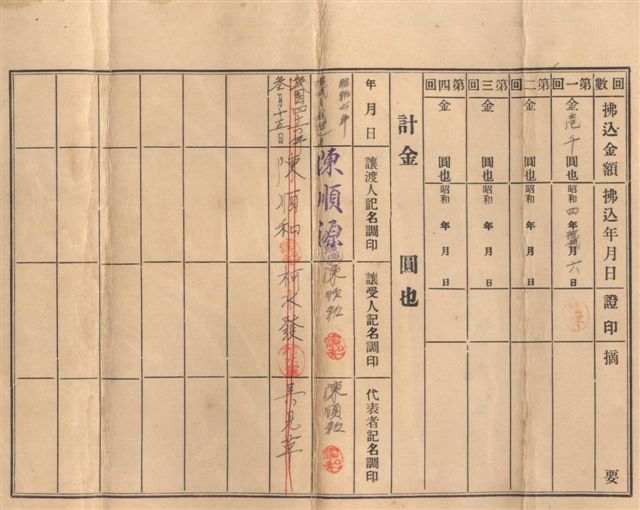 回數 拂込金額 拂込年月日 證印 摘要
第一回 金壱千圓也 昭和四年 月六日
第二回 金 圓也 昭和 年 月 日
第三回 金 圓也 昭和 年 月 日
第四回 金 圓也 昭和 年 月 日
計金 圓也
年月日 讓渡人記名調印 讓受人記名調印 代表者記名調印
昭和 年 陳順源 陳順和 陳順和
民國四十三年
叁月十五日 陳順和 柯水發